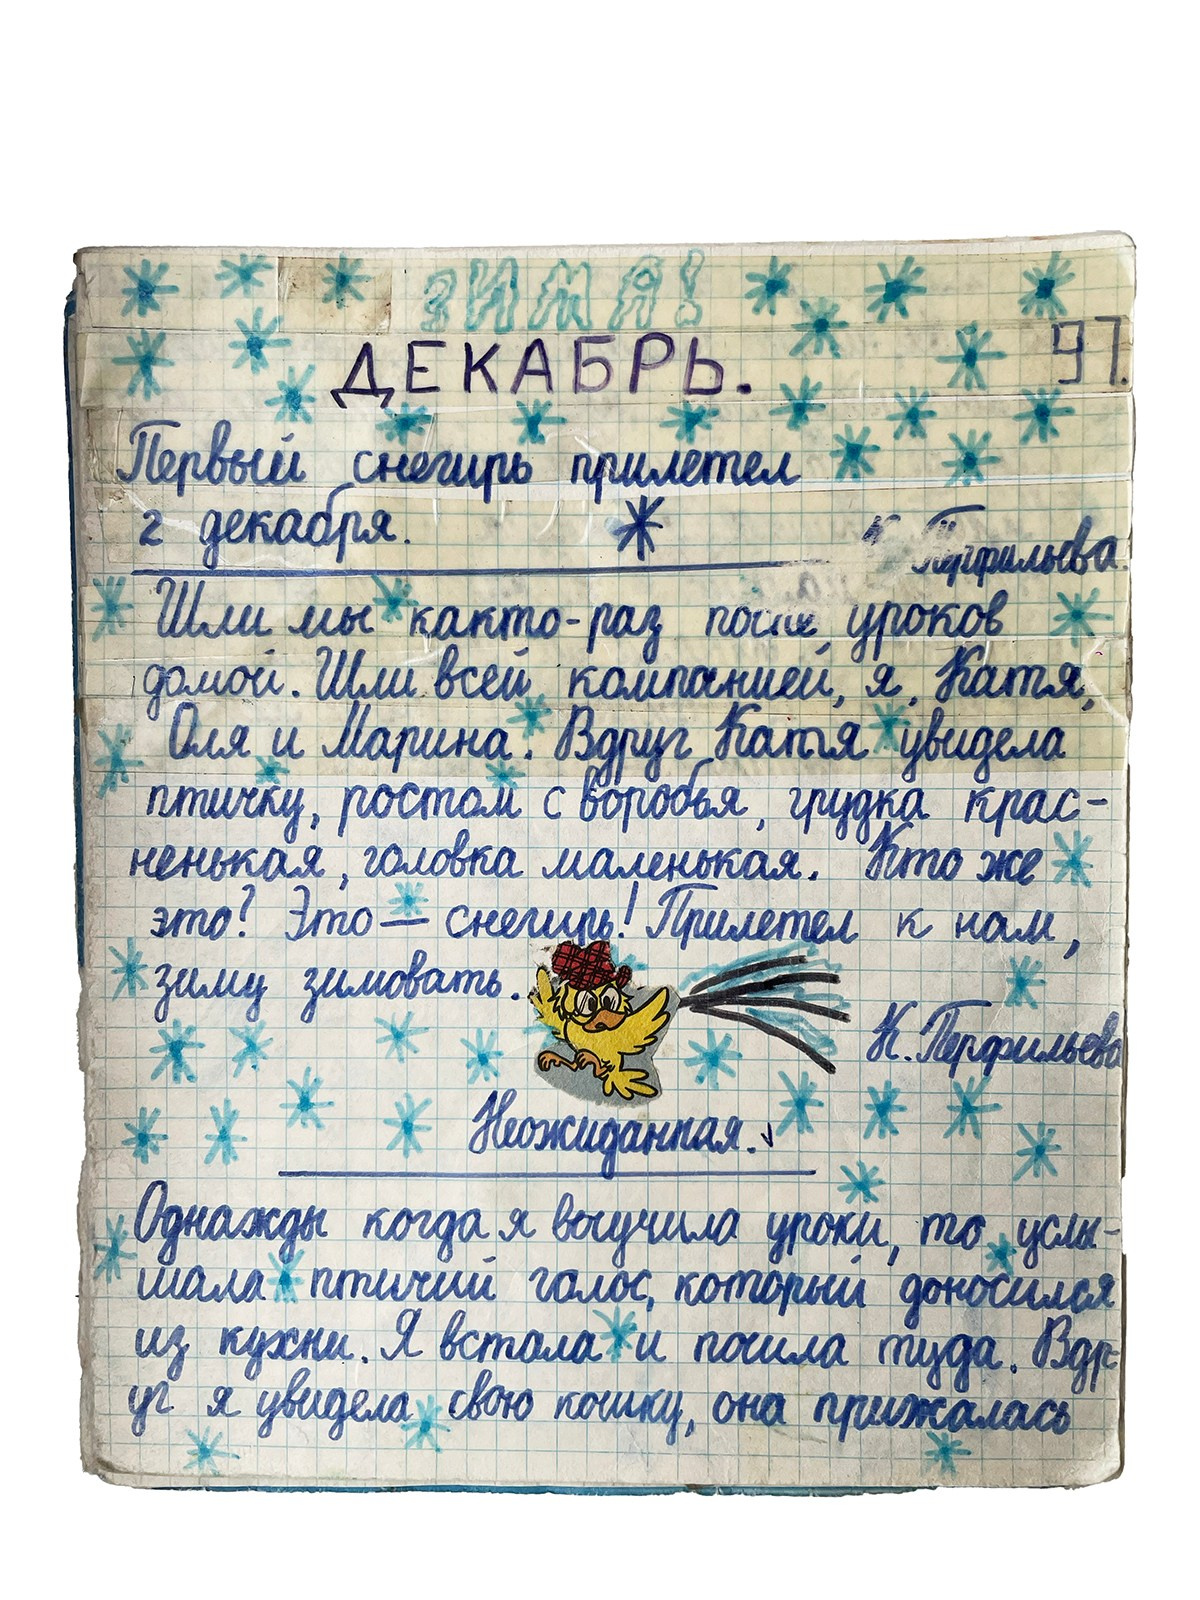 ЗИМА!
ДЕКАБРЬ.
97.
Первый снегирь прилетел
2 декабря.
К. Перфильева.
Шли мы както-раз после уроков
домой. Шли всей компанией, я, Катя,
Оля и Марина. Вдруг Катя увидела
птичку, ростом с воробья, грудка крас-
ненькая, головка маленькая. Кто же
это? Это — снегирь! Прилетел к нам,
зиму зимовать.
К. Перфильева
Неожиданная.
Однажды когда я выучила уроки, то услы-
шала птичий голос, который доносился
из кухни. Я встала и пошла туда. Вдр-
уг я увидела свою кошку, она прижалась